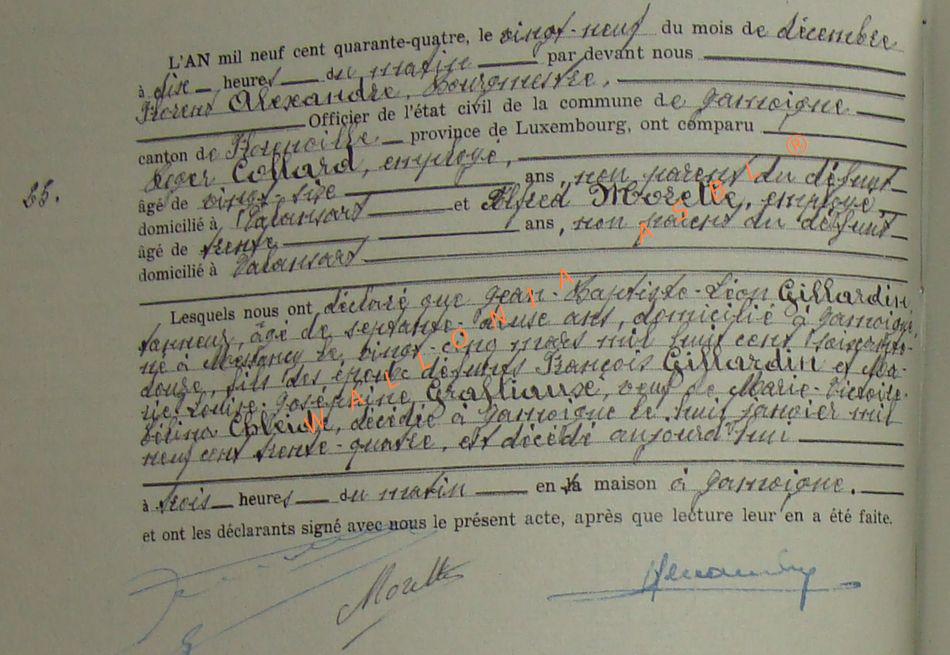 L'AN mil neuf cent quarante-quatre, le vingt-neuf du mois de décembre
à dix heures du matin par devant nous
Florent Alexandre, Bourgmestre,
Officier de l'état civil de la commune de Jamoigne
canton de Florenville province de Luxembourg, ont comparu
Roger Collard, employé,
25.
âgé de vingt-six ans, non parent du défunt
domicilié à Valansart et Alfred Morette, employé
âgé de trente ans, non parent du défunt
domicilié à Valansart
Lesquels nous ont déclaré que Jean-Baptiste-Léon Gillardin,
tanneur, âgé de septante-deux ans, domicilié à Jamoigne,
né à Messancy le vingt-cinq mars mil huit cent soixante-
douze, fils des époux défunts François Gillardin et Ma-
rie-Louise-Joséphine, veuf de Marie-Victoire-
décédée à Jamoigne le huit janvier mil
neuf cent trente-quatre, est décédé aujourd'hui
à trois heures du matin en sa maison à Jamoigne.
et ont les déclarants signé avec nous le présent acte, après que lecture leur en a été faite.
Morette
WALLONIA ASBL ®